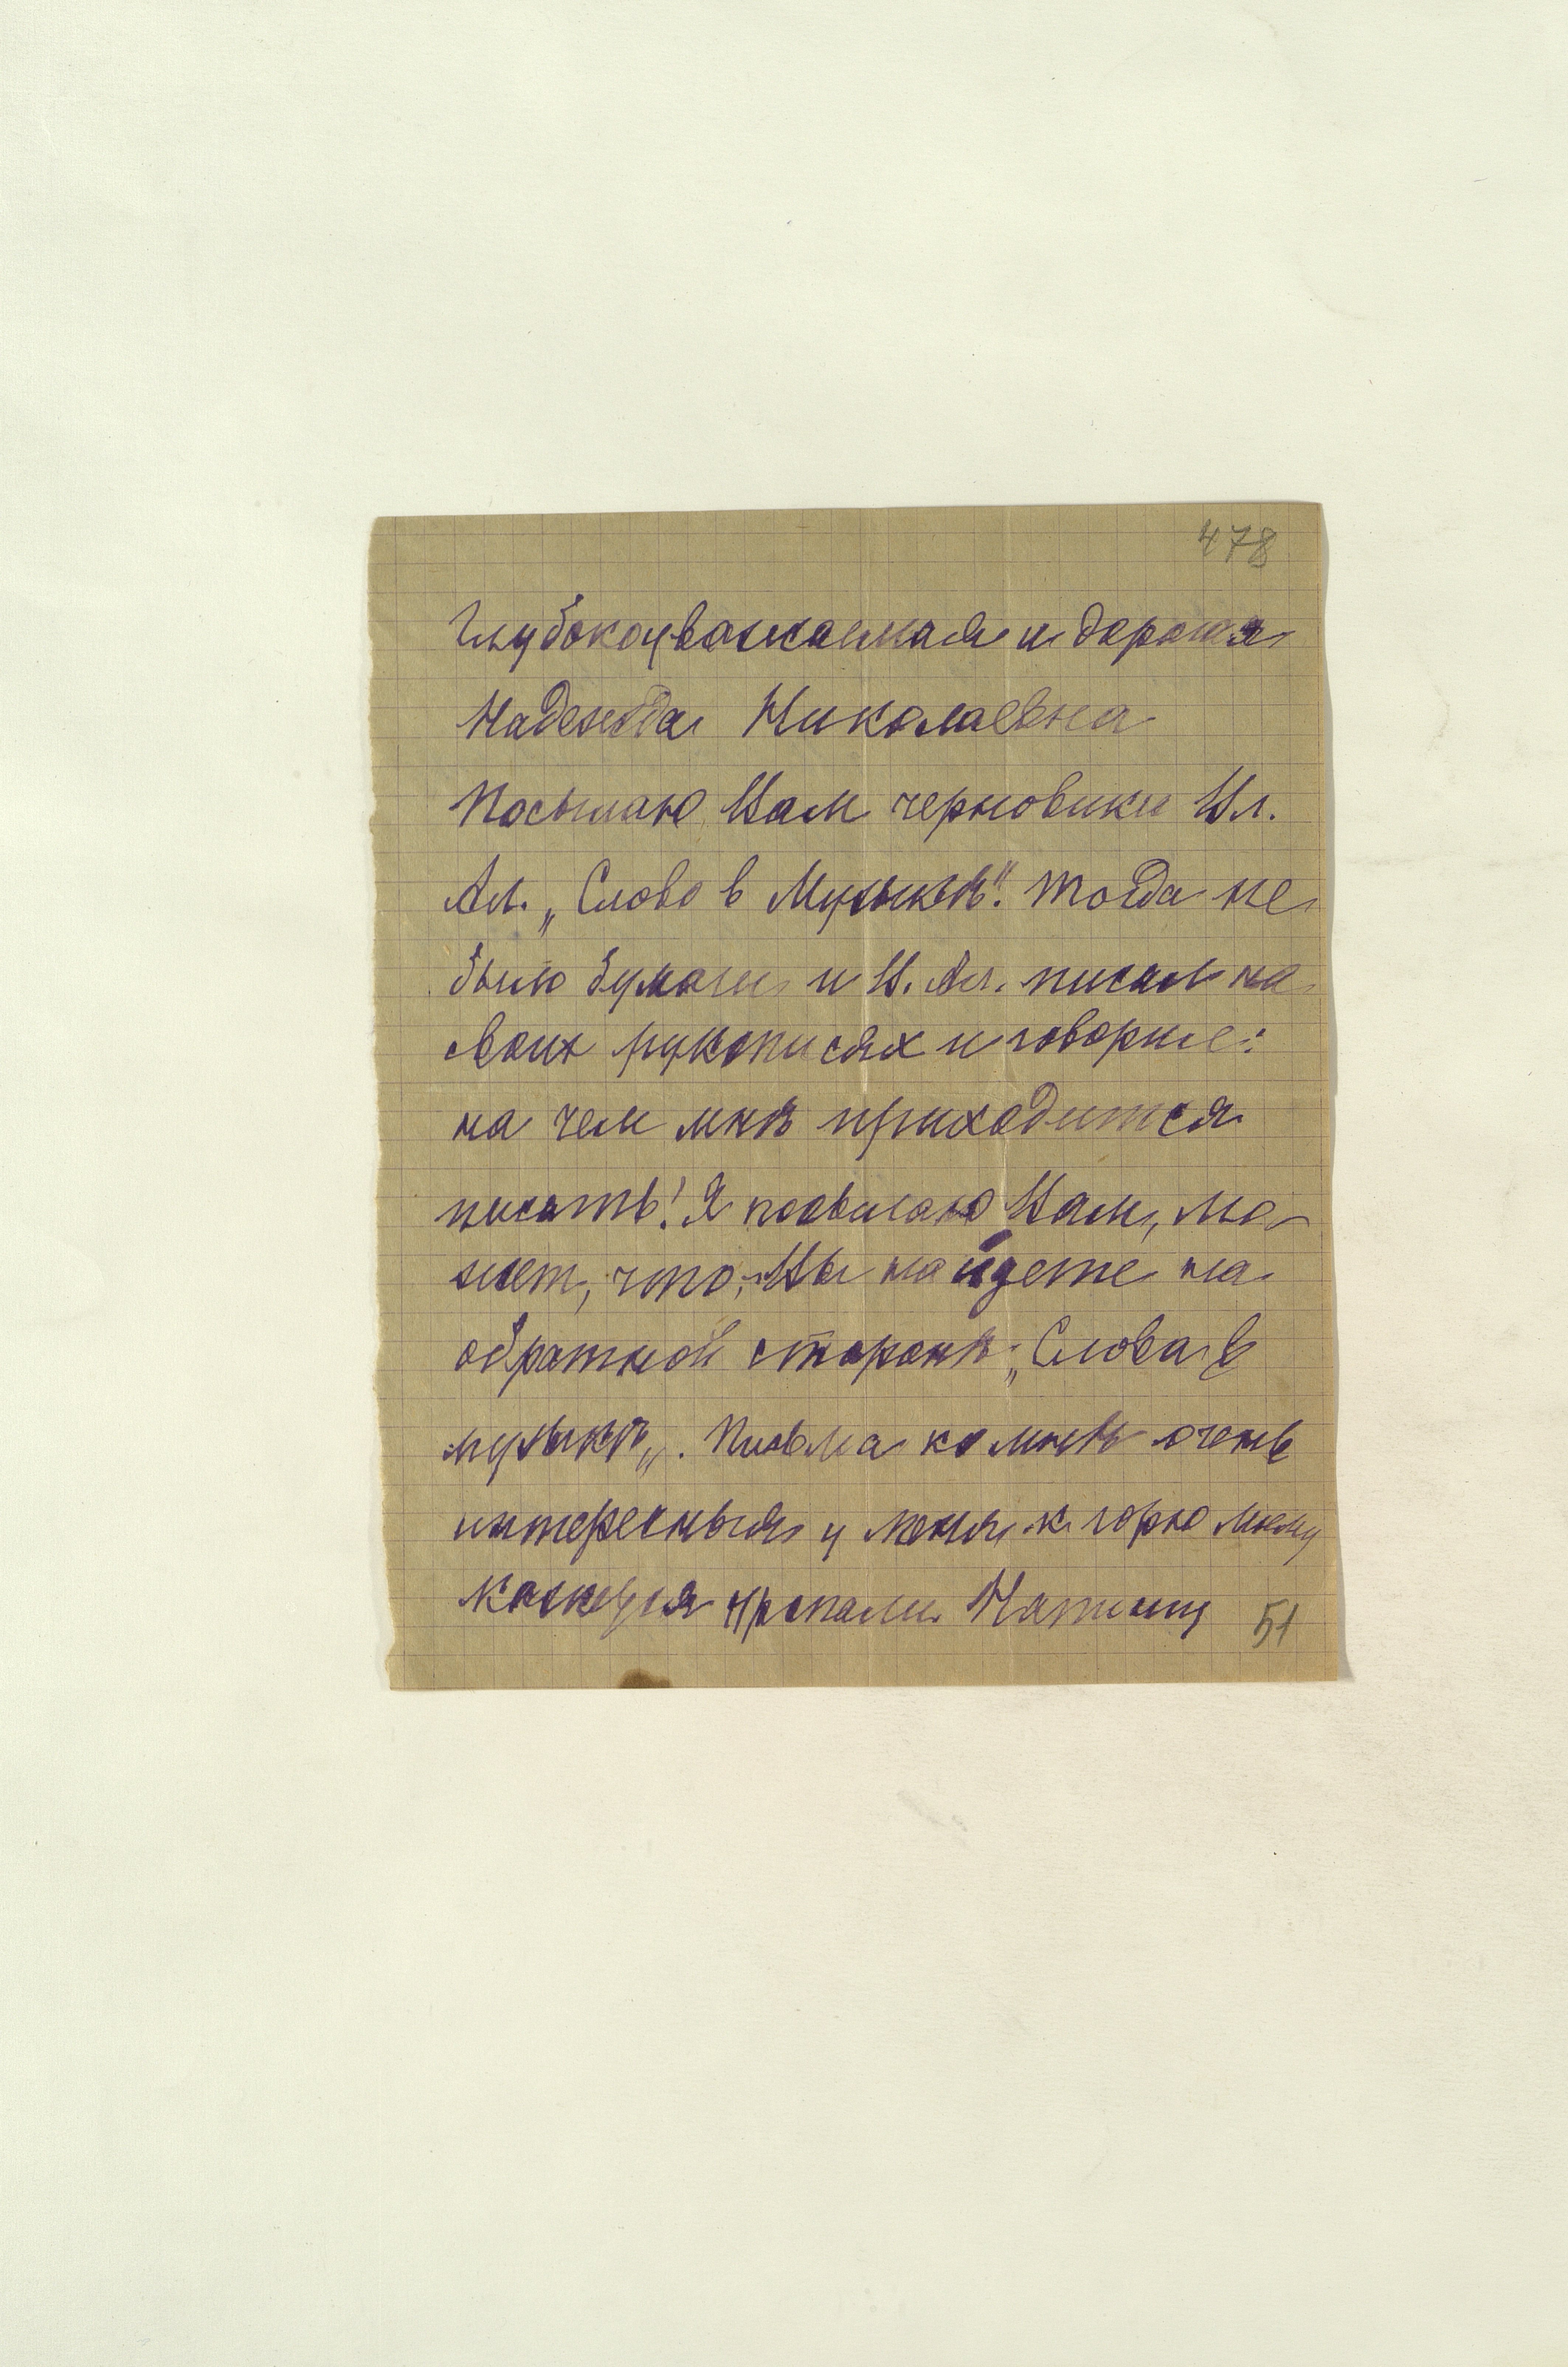 478
Глубокоуважаемая и дорогая
Надежда Николаевна
Посылаю Вам черновики Вл.
Ал. „Слово в Музыкѣ". Тогда не
было бумаги и В. Ал. писал на
своих рукописях и говорил:
на чем мнѣ приходится
писать! Я посылаю Вам, мо-
жет, что, Вы найдете на
обратной сторонѣ „Слова в
музыкѣ„. Письма ко мнѣ очень
интересныя у меня к горю моему
кажется пропали.
51